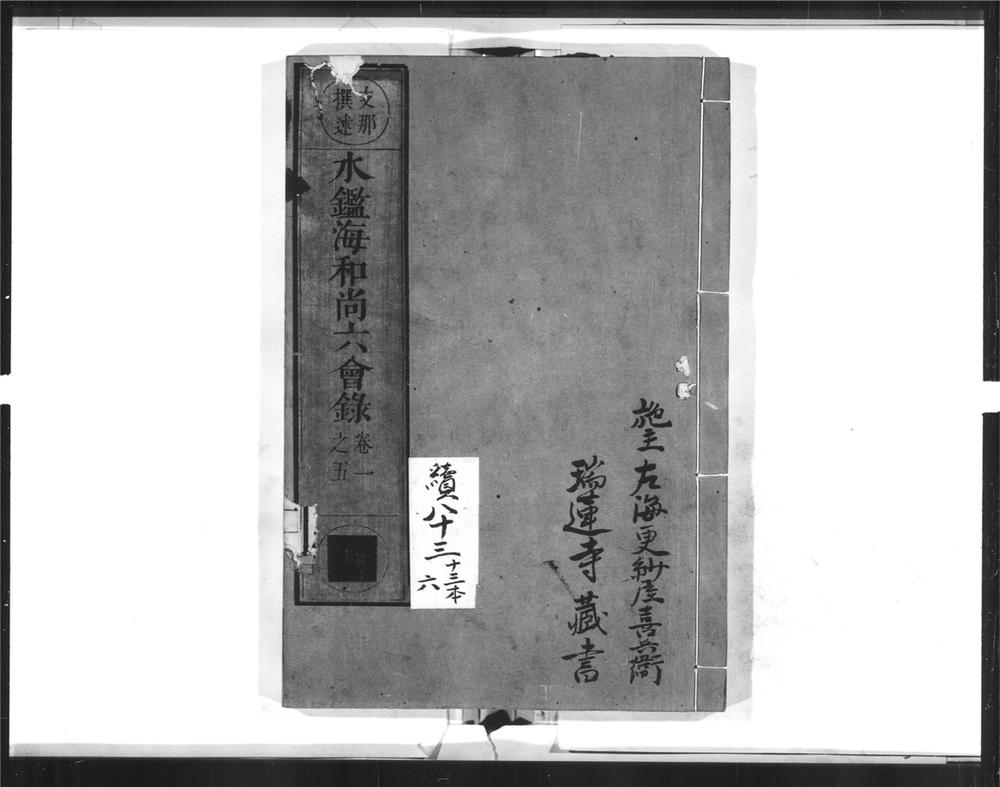 施主 左海更紗屋喜兵衛
瑞蓮寺藏書
續八十三
十三本
六
支那
撰述
水鑑海和尚六會錄
卷一
之五